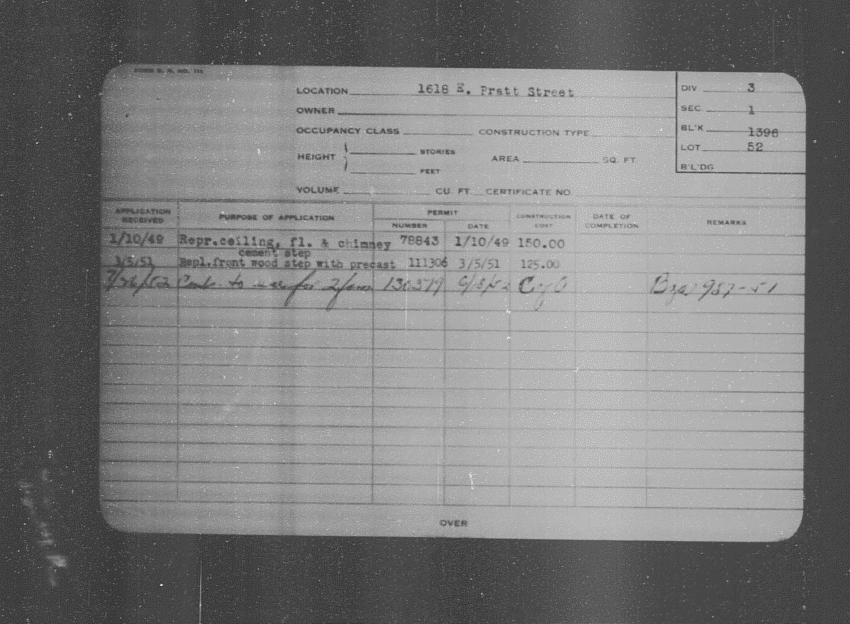 LOCATION 1618 E. Pratt Street
OWNER
OCCUPANCY CLASS CONSTRUCTION TYPE
HEIGHT STORIES FEET AREA SQ. FT.
VOLUME CU. FT. CERTIFICATE NO.
DIV 3
SEC 1
BL'K 1396
LOT 52
B'L'DG
APPLICATION RECEIVED PURPOSE OF APPLICATION PERMIT NUMBER DATE CONSTRUCTION COST DATE OF COMPLETION REMARKS
1/10/49 Repr.ceiling, fl. & chimney 78843 1/10/49 150.00
cement step
3/5/51 Repl.front wood step with precast 111306 3/5/51 125.00
to use for 2 fam C of O 987-51
OVER